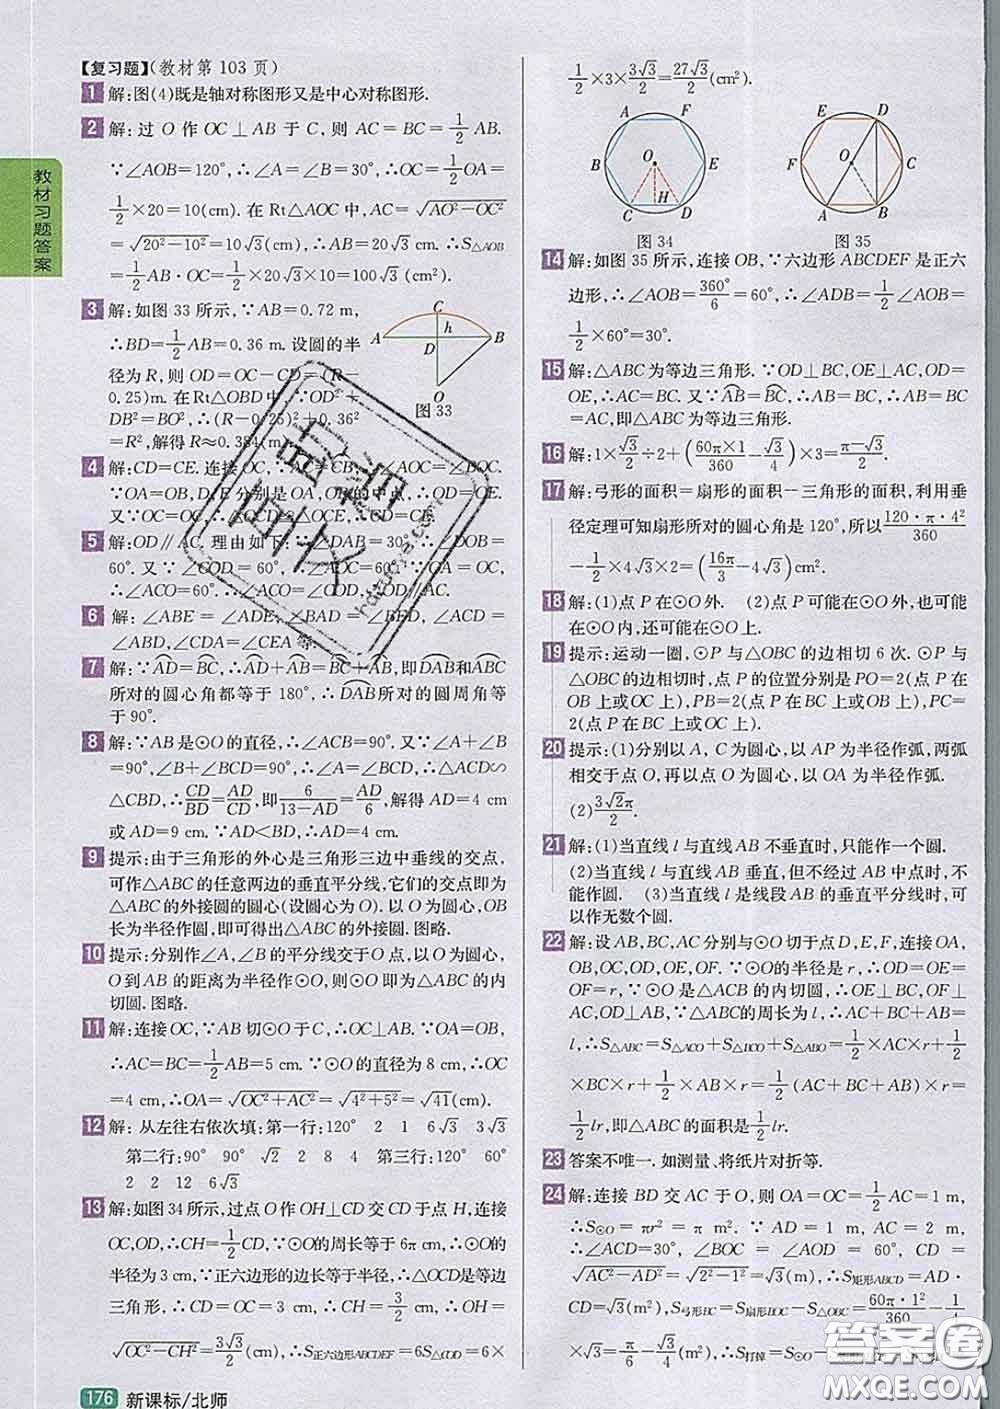 【复习题】(教材第 103 页)
1 解:图(4)既是轴对称图形又是中心对称图形.
2 解:过 O 作 OC⊥AB 于 C,则 AC=BC=1/2 AB.
∵∠AOB=120°,∴∠A=∠B=30°.∴OC=1/2 OA=
1/2×20=10(cm).在 Rt△AOC 中,AC=√(AO²-OC²)
=√(20²-10²)=10√3(cm),∴AB=20√3 cm.∴S△AOB
=1/2 AB·OC=1/2×10×20√3=100√3(cm²).
3 解:如图 33 所示,∵AB=0.72 m,
∴BD=1/2 AB=0.36 m.设圆的半
径为R,则 OD=OC-CD=(R-
0.25)m.在 Rt△OBD 中,∵OD²+
DB²=BO²,∴(R-0.25)²+0.36²
=R²,解得 R≈0.384(m).
C
A
h
B
D
O
图 33
4 解:CD=CE.连接 OC,∵AC=CB,∴∠AOC=∠BOC.
∵OA=OB,D,E 分别是 OA,OB的中点,∴OD=OE.
又∵OC=OC,∴△COD≌△COE,∴CD=CE.
5 解:OD∥AC.理由如下:∵∠DAB=30°,∴∠DOB=
60°.又∵∠COD=60°,∴∠AOC=60°.∵OA=OC,
∴∠ACO=60°.∴∠ACO=∠COD,∴OD∥AC.
6 解:∠ABE=∠ADE,∠BAD=∠BED,∠ACD=
∠ABD,∠CDA=∠CEA 等.
7 解:∵AD=BC,∴AD+AB=BC+AB,即DAB和ABC
所对的圆心角都等于 180°,∴DAB所对的圆周角等
于 90°.
8 解:∵AB是⊙O的直径,∴∠ACB=90°.又∵∠A+∠B
=90°,∠B+∠BCD=90°,∴∠A=∠BCD,∴△ACD∽
△CBD,∴CD/BD=AD/CD,即6/(13-AD)=AD/6,解得 AD=4 cm
或 AD=9 cm.∵AD<BD,∴AD=4 cm.
9 提示:由于三角形的外心是三角形三边中垂线的交点,
可作△ABC的任意两边的垂直平分线,它们的交点即为
△ABC的外接圆的圆心(设圆心为O).以O为圆心,OB
长为半径作圆,即可得出△ABC的外接圆.图略.
10 提示:分别作∠A,∠B 的平分线交于O点,以O为圆心,
O到AB的距离为半径作⊙O,则⊙O即为△ABC的内
切圆.图略.
11 解:连接OC,∵AB切⊙O于C,∴OC⊥AB.∵OA=OB,
∴AC=BC=1/2 AB=5 cm.∵⊙O的直径为 8 cm,∴OC
=4 cm,∴OA=√(OC²+AC²)=√(4²+5²)=√41(cm).
12 解:从左往右依次填:第一行:120° 2 1 6√3 3√3
第二行:90° 90° √2 2 8 4 第三行:120° 60°
2 2 12 6√3
13 解:如图 34 所示,过点O作OH⊥CD交CD于点H,连接
OC,OD,∴CH=1/2 CD,∵⊙O的周长等于6π cm,∴⊙O的
半径为3 cm,∵正六边形的边长等于半径,∴△OCD是等边
三角形,∴CD=OC=3 cm,∴CH=3/2 cm,∴OH=
√(OC²-CH²)=3√3/2(cm),∴S正六边形ABCDEF=6S△OCD=6×
1/2×3×3√3/2=27√3/2(cm²).
A F
B O E
C H D
图 34
E D
F O C
A B
图 35
14 解:如图 35 所示,连接 OB,∵六边形 ABCDEF 是正六
边形,∴∠AOB=360°/6=60°,∴∠ADB=1/2∠AOB=
1/2×60°=30°.
15 解:△ABC为等边三角形.∵OD⊥BC,OE⊥AC,OD=
OE,∴AC=BC.又∵AB=BC,∴AB=BC.∴AB=BC
=AC,即△ABC为等边三角形.
16 解:1×√3/2÷2+(60π×1/360-√3/4)×3=(π-√3)/2.
17 解:弓形的面积=扇形的面积-三角形的面积,利用垂
径定理可知扇形所对的圆心角是 120°,所以120·π·4²/360
-1/2×4√3×2=(16π/3-4√3)cm².
18 解:(1)点P在⊙O外. (2)点P可能在⊙O外,也可能
在⊙O内,还可能在⊙O上.
19 提示:运动一圈,⊙P与△OBC的边相切 6 次.⊙P与
△OBC的边相切时,点P的位置分别是PO=2(点P在
OB 上或OC上),PB=2(点P在OB上或BC上),PC=
2(点P在BC上或OC上).
20 提示:(1)分别以A,C为圆心,以AP为半径作弧,两弧
相交于点O,再以点O为圆心,以OA为半径作弧.
(2)3√2π/2.
21 解:(1)当直线 l 与直线 AB 不垂直时,只能作一个圆.
(2)当直线 l 与直线 AB 垂直,但不经过 AB 中点时,不
能作圆. (3)当直线 l 是线段 AB 的垂直平分线时,可
以作无数个圆.
22 解:设AB,BC,AC分别与⊙O切于点D,E,F,连接OA,
OB,OC,OD,OE,OF.∵⊙O的半径是r,∴OD=OE=
OF=r.∵⊙O是△ACB的内切圆,∴OE⊥BC,OF⊥
AC,OD⊥AB,∵△ABC的周长为l,∴AC+BC+AB=
l,∴S△ABC=S△ACO+S△BCO+S△ABO=1/2×AC×r+1/2
×BC×r+1/2×AB×r=1/2×(AC+BC+AB)×r=
1/2 lr,即△ABC的面积是1/2 lr.
23 答案不唯一.如测量、将纸片对折等.
24 解:连接BD交AC于O,则OA=OC=1/2 AC=1 m,
∴S⊙O=πr²=π m².∵AD=1 m,AC=2 m,
∴∠ACD=30°,∠BOC=∠AOD=60°,CD=
√(AC²-AD²)=√(2²-1²)=√3(m),∴S矩形ABCD=AD·
CD=√3(m²),S弓形BC=S扇形BOC-S△OBC=60π·1²/360-1/4
×√3=π/6-√3/4(m²).∴S打掉=S⊙O-S
教材习题答案
176 新课标/北师
答案卷
MXQE.COM